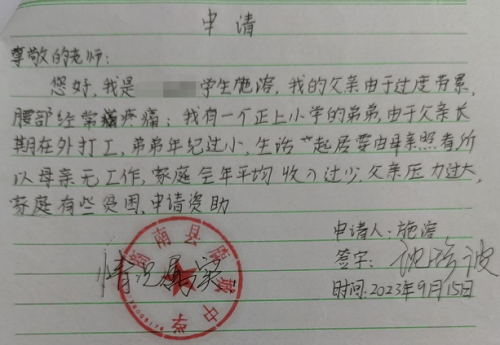 申请
尊敬的老师:
您好,我是 学生施滢,我的父亲由于过度劳累,
腰部经常疼痛;我有一个正上小学的弟弟,由于父亲长
期在外打工,弟弟年纪过小,生活起居要由母亲照看所
以母亲无工作,家庭全年平均收入过少,父亲压力过大,
家庭有些贫困,申请资助
申请人:施滢
情况属实
签字:
时间:2023年9月15日
南县 中学